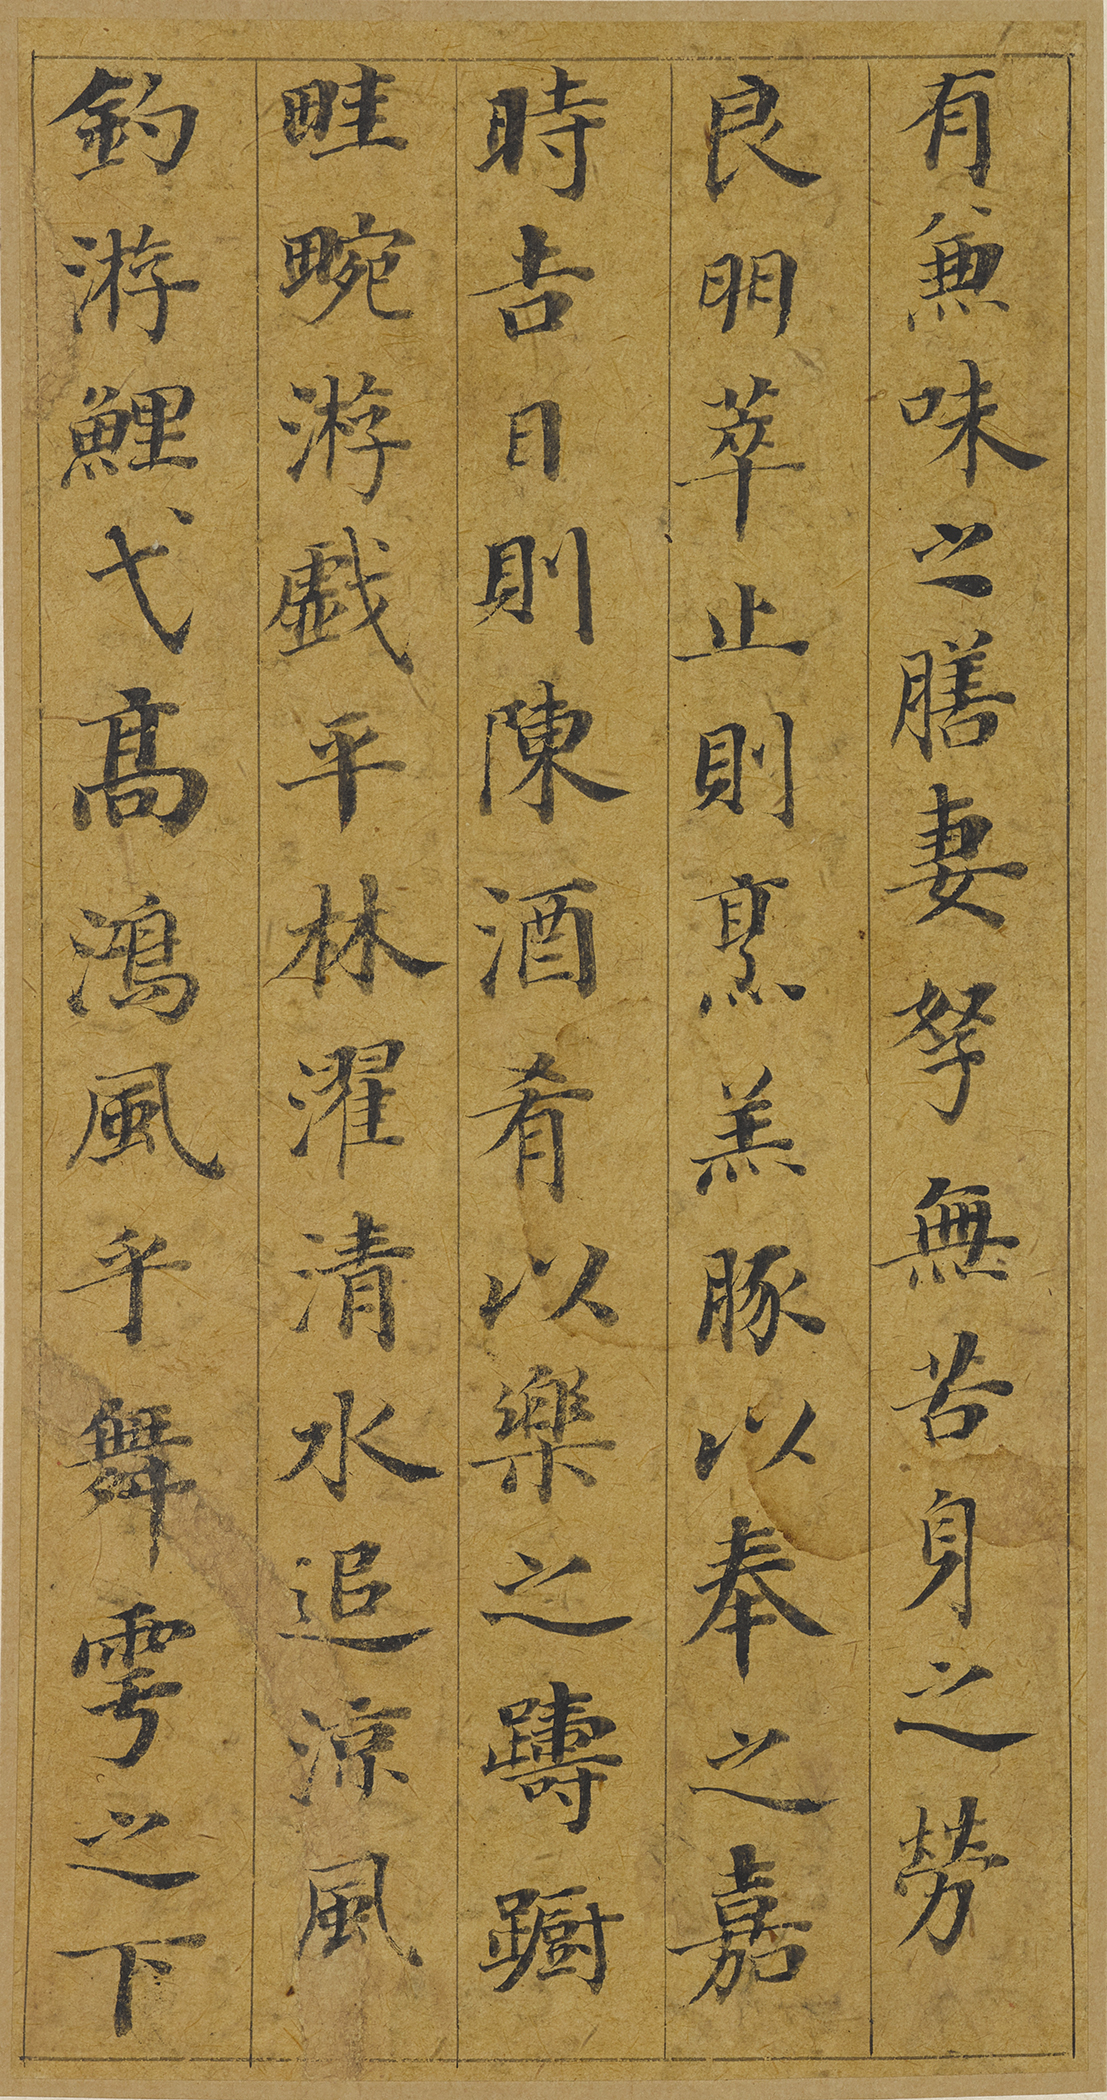 有兼味之膳妻孥無苦身之勞
良朋萃止則烹羔豚以奉之嘉
時吉日則陳酒肴以樂之躊躕
畦畹游戲平林濯清水追涼風
釣游鯉弋高鴻風乎舞雩之下